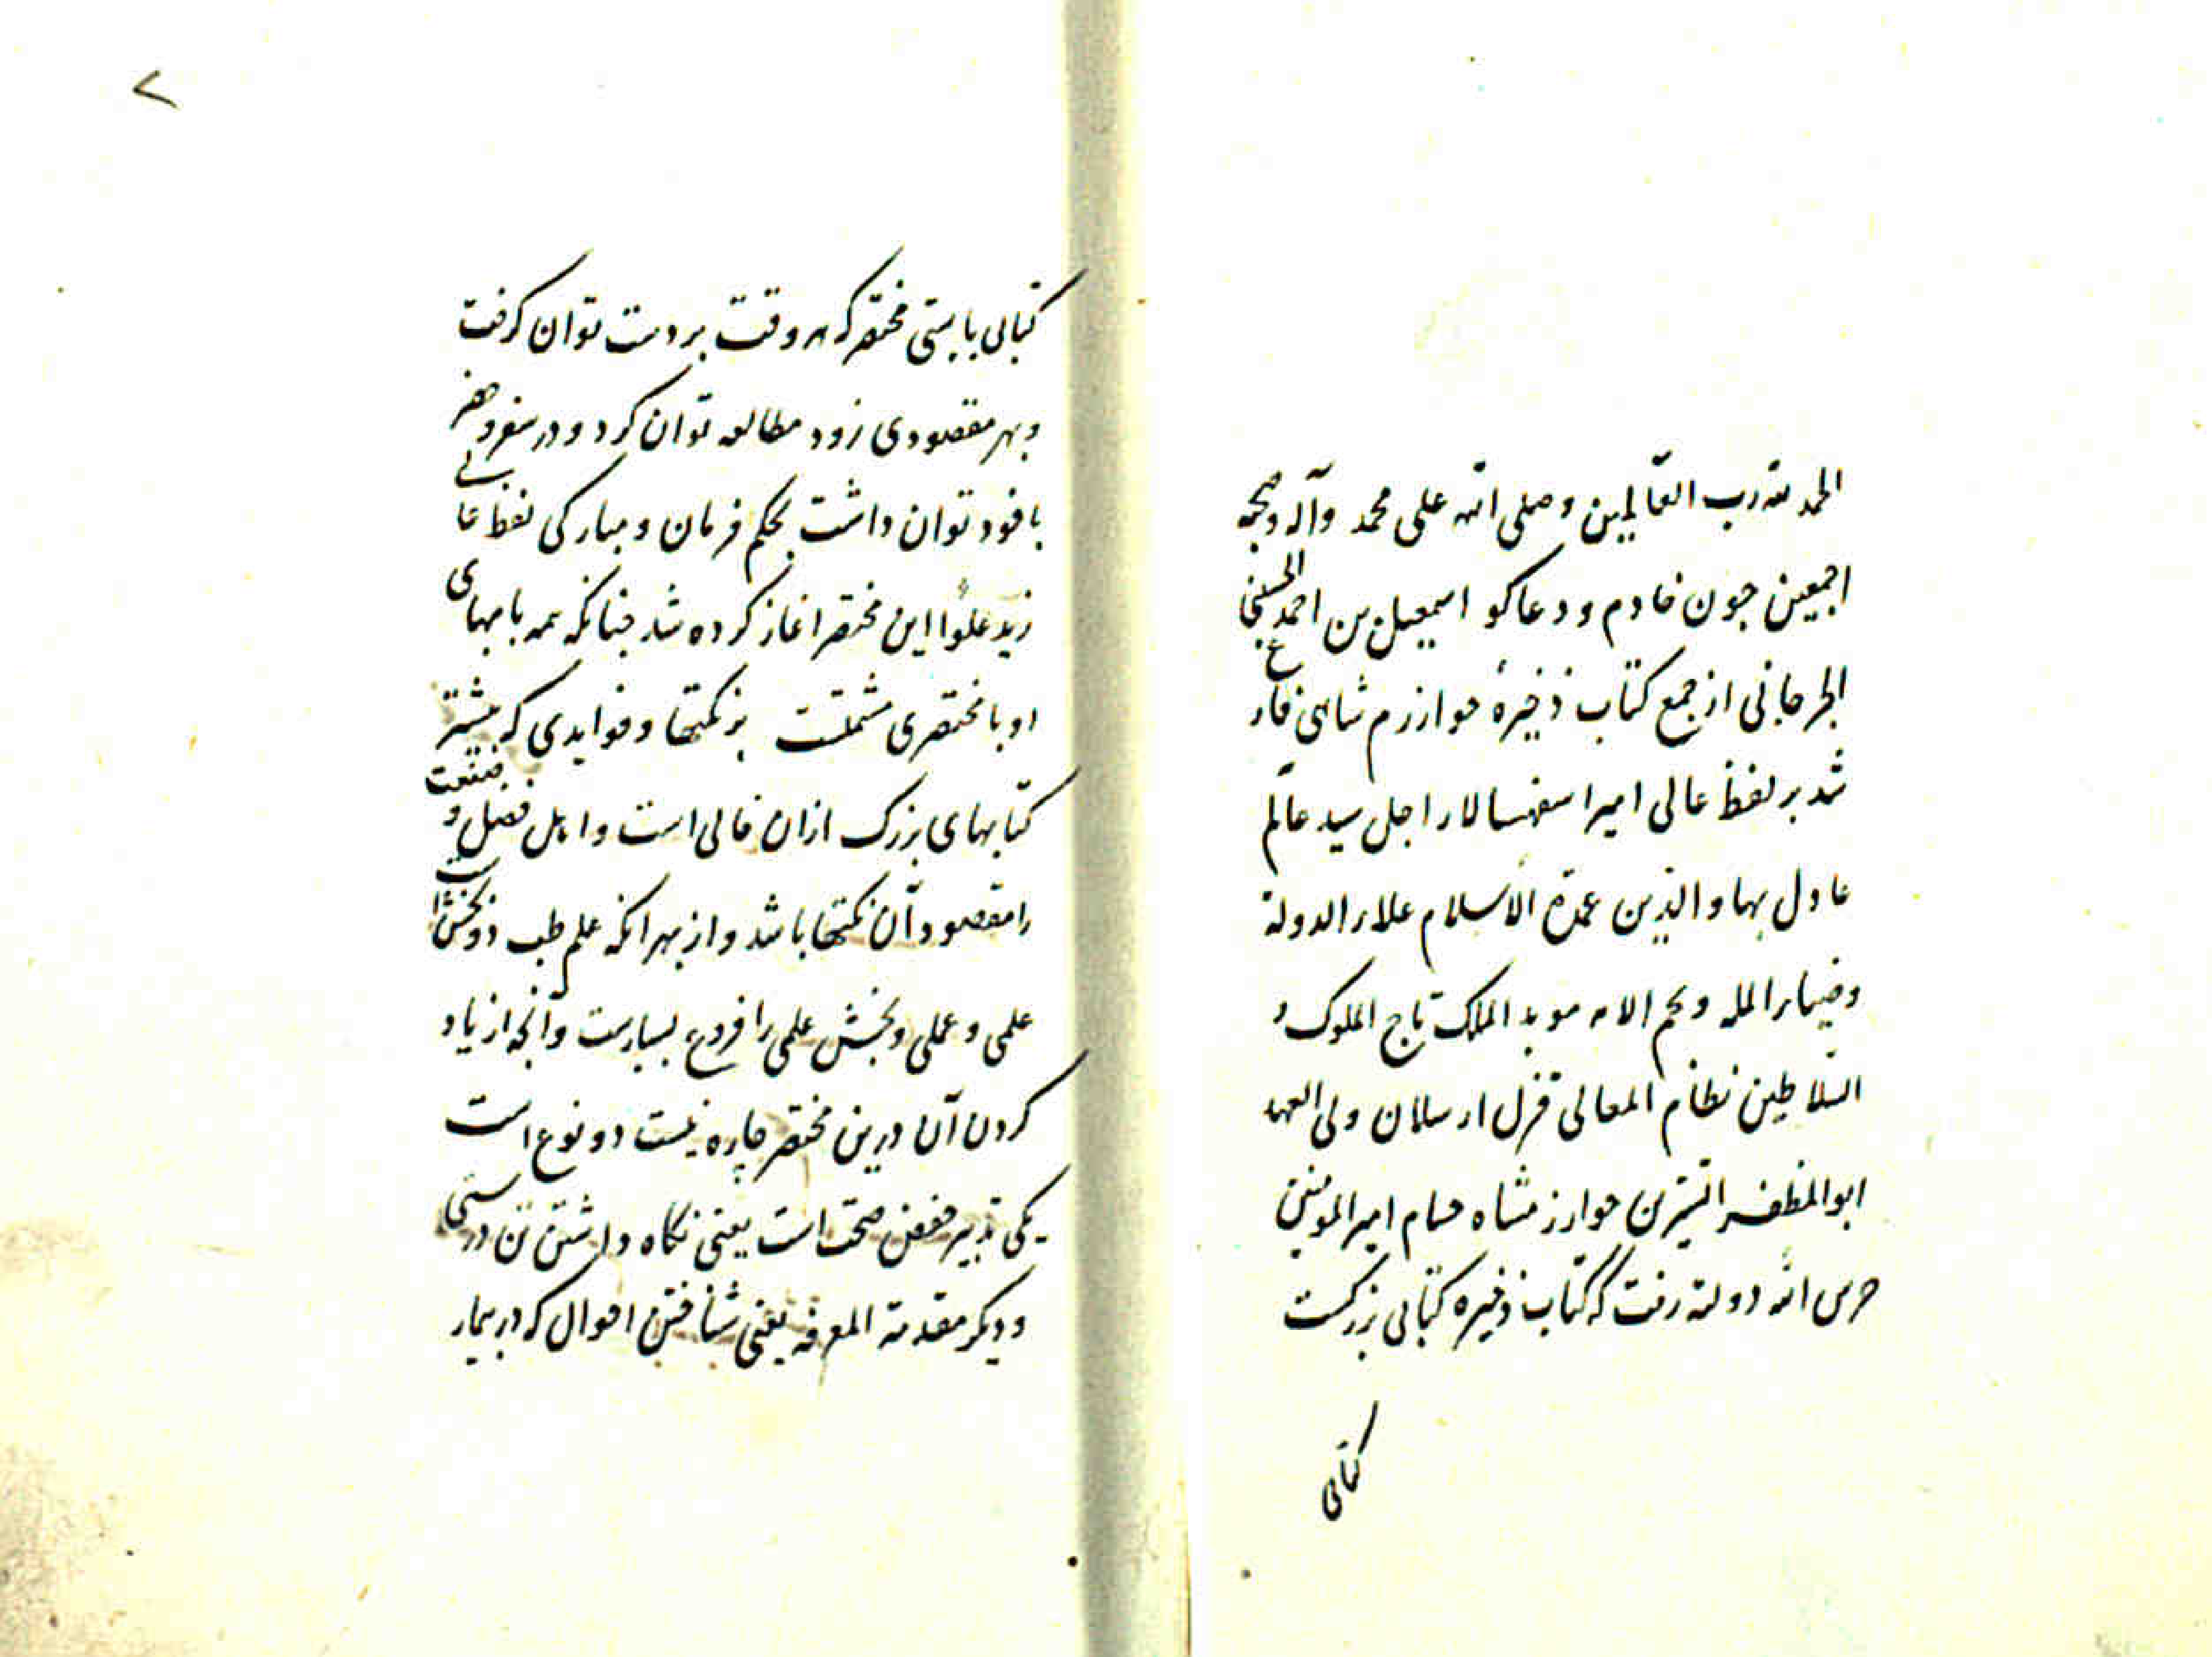 الحمد لله رب العالمین وصلی الله علی محمد وآله وصحبه
اجمعین جون خادم و دعاکو اسمعیل بن احمد الحسنی
الجرجانی از جمع کتاب ذخیرهٔ خوارزم شاهی فارغ
شد بر لفظ عالی امیر اسفهسالار اجل سید عالم
عادل بهاء الدین عمدة الاسلام علاء الدولة
وضیاء المله و نجم الامه موید الملک تاج الملوک و
السلاطین نظام المعالی قزل ارسلان ولی العهد
ابوالمظفر اتسز بن خوارزمشاه حسام امیر المومنین
حرس الله دولته رفت که کتاب ذخیره کتابی بزرکست
کتابی
۲
کتابی بایستی مختصر که هر وقت بر دست توان کرفت
وبهر مقصودی زود مطالعه توان کرد و در سفر و حضر
باخود توان داشت بحکم فرمان و مبارکی لفظ عالی
زید علوا این مختصر اغاز کرده شد جنانکه همه بابهای
او با مختصری مشتملست بر نکتها و فوایدی که بیشتر
کتابهای بزرک ازان خالی است و اهل فضل و صنعت
را مقصود آن نکتها باشد و از بهر انکه علم طب دو بخش است
علمی و عملی و بخش علمی را فروع بسیارست و آنجه از یاد
کردن آن درین مختصر چاره نیست دو نوع است
یکی تدبیر حفظ صحت است یعنی نکاه داشتن تن درستی
و دیکر مقدمة المعرفه یعنی شناختن احوال که در بیمار